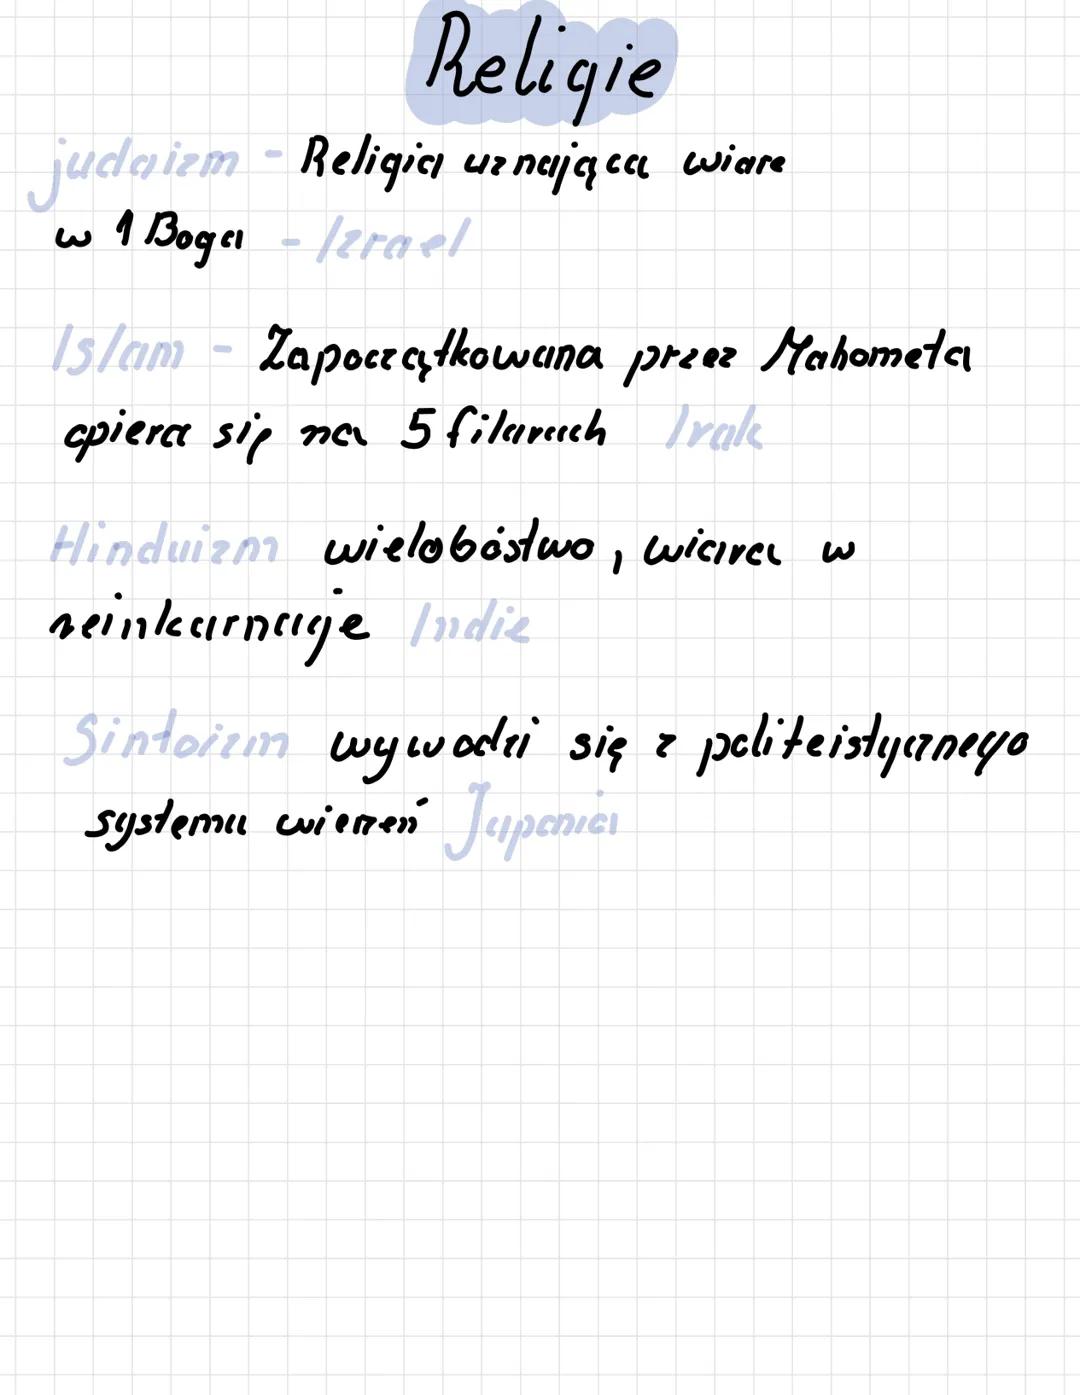 Religie
judaizm - Religia uznająca wiare
w 1 Boga - Izrael
Islam - Zapoczątkowana przez Mahometa
opiera się na 5 filarach Irak
Hinduizm wielobóstwo, wiara w
reinkarnacje Indie
Sintoizm wywodzi się z politeistycznego
systemu wierzeń Japonia